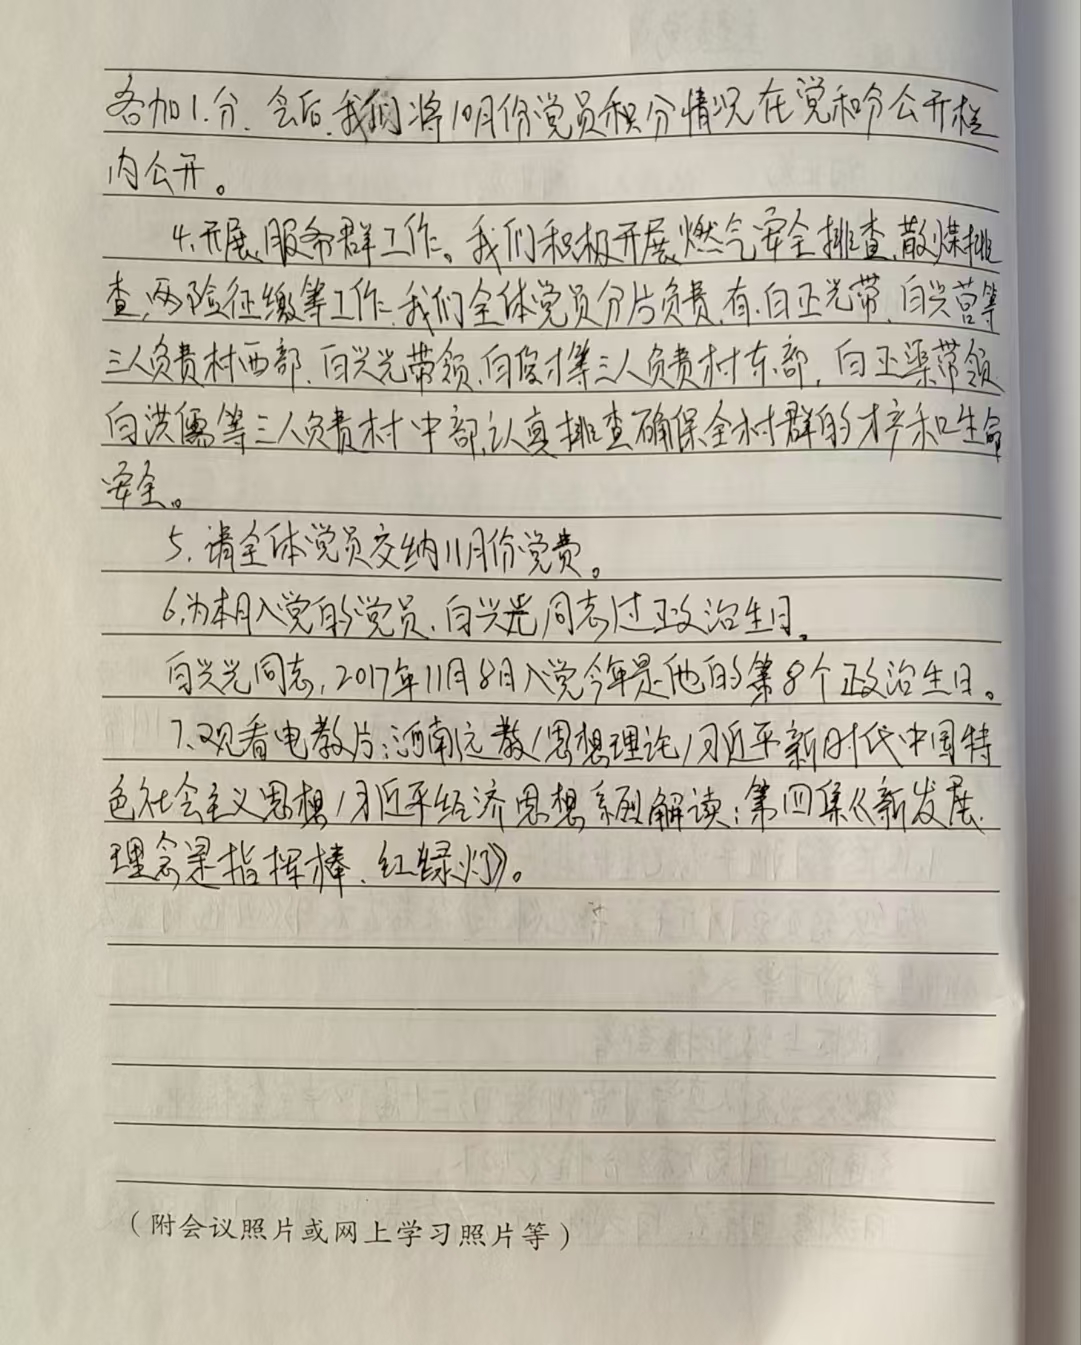 各加1分、会后、我们将10月份党员积分情况在党积分公开栏
内公开。
4、开展服务群工作。我们积极开展燃气安全排查、散煤排
查、两险征缴等工作、我们全体党员分片负责、有、白正光带、白兴营等
三人负责村西部、白兴光带领、白俊才等三人负责村东部、白玉渠带领
白洪儒等三人负责村中部、认真排查确保全村群的才产和生命
安全。
5、请全体党员交纳11月份党费。
6、为本月入党的党员、白兴光同志过政治生日、
白兴光同志，2017年11月8日入党今年是他的第8个政治生日。
7、观看电教片：河南远教/思想理论/习近平新时代中国特
色社会主义思想/习近平经济思想系列解读：第四集《新发展
理念是指挥棒、红绿灯》。
（附会议照片或网上学习照片等）